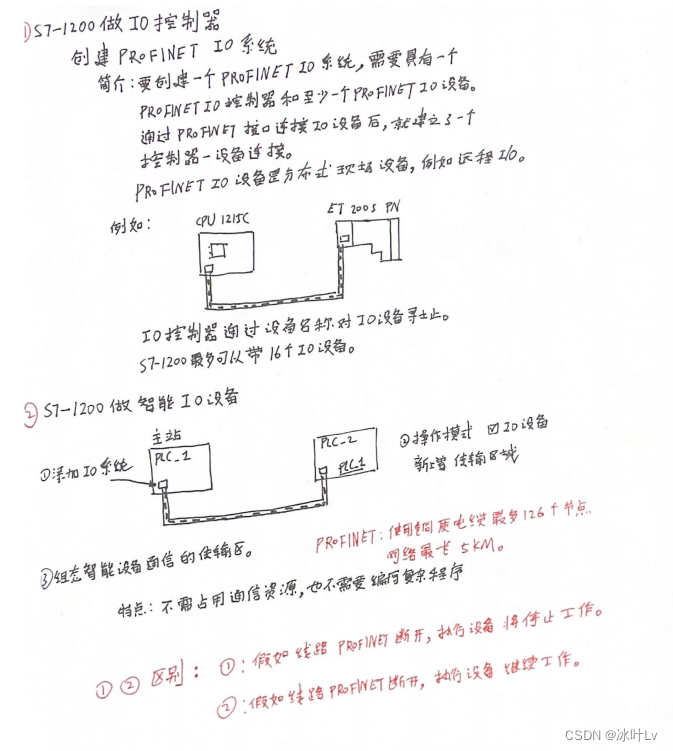 ①S7-1200做IO控制器
创建PROFINET IO系统
简介:要创建一个PROFINET IO系统,需要具有一个
PROFINET IO控制器和至少一个PROFINET IO设备。
通过PROFINET接口连接IO设备后,就建立了一个
控制器-设备连接。
PROFINET IO设备是分布式现场设备,例如远程I/O。
例如:
CPU 1215C
ET 200S PN
IO控制器通过设备名称对IO设备寻址。
S7-1200最多可以带16个IO设备。
②S7-1200做智能IO设备
主站
PLC_1
①添加IO系统
PLC_2
PLC_1
②操作模式 ☑IO设备
新增传输区域
PROFINET:使用铜质电缆最多126个节点
网络最长5KM。
③组态智能设备通信的传输区。
特点:不需占用通信资源,也不需要编写复杂程序
①②区别:①:假如线路PROFINET断开,执行设备将停止工作。
②:假如线路PROFINET断开,执行设备继续工作。
CSDN @冰叶Lv